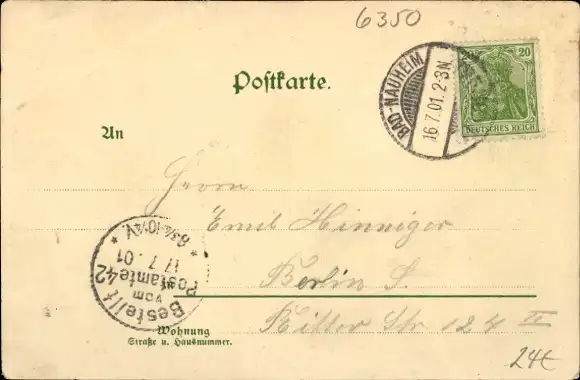 6350
20
DEUTSCHES REICH
BAD-NAUHEIM
16.7.01.2-3N.
Postkarte.
An
Herrn
Emil Hinniger
Berlin S.
Ritter Str 124 II
Wohnung
Straße u. Hausnummer.
Bestellt
vom
Postamte 42
17.7.01
* 8¾-10¼V. *
24€